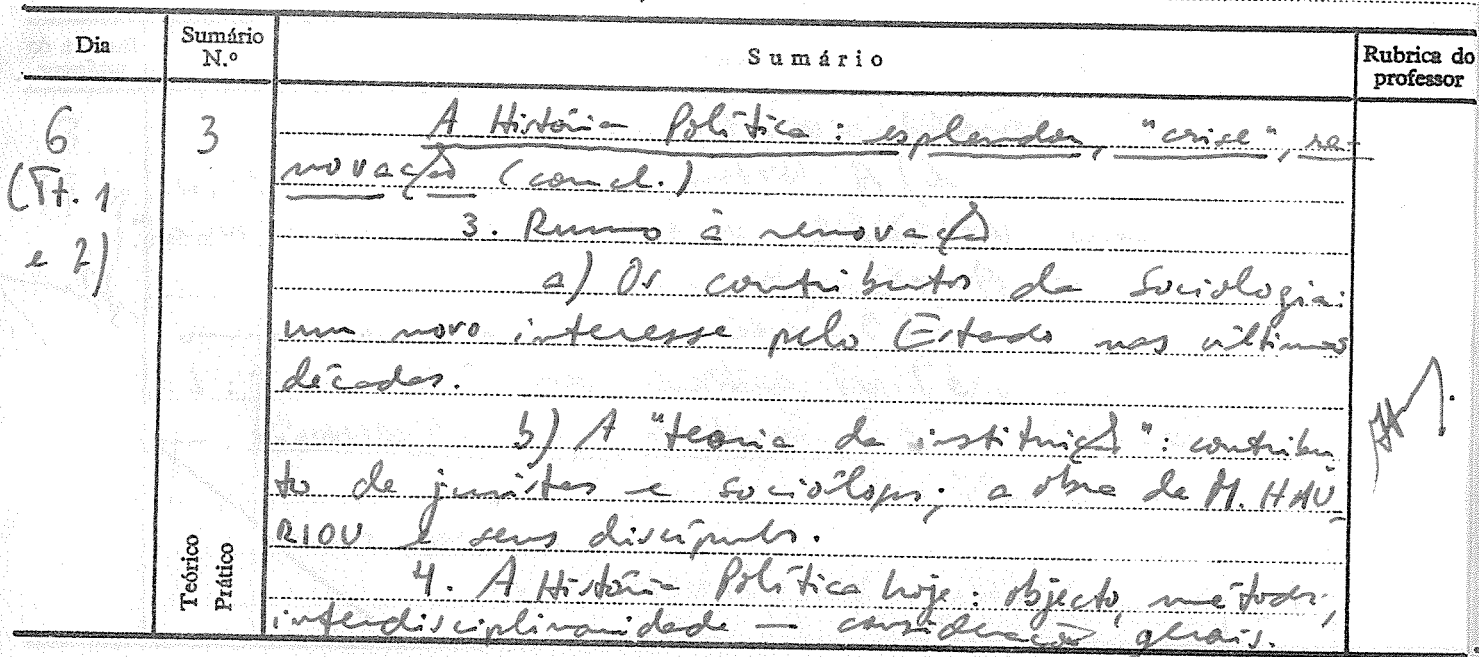 Dia Sumário N.º Sumário Rubrica do professor
6 3 A História Política: esplendor, "crise", re-
(Tt. 1 novação (concl.)
3. Rumo à renovação
e 2) a) Os contributos da Sociologia:
um novo interesse pelo Estado nas últimas
décadas.
b) A "teoria da instituição": contribu
to de juristas e sociólogos; a obra de M. HAU-
RIOU e seus discípulos.
Teórico Prático 4. A História Política hoje: objecto, métodos,
interdisciplinaridade — considerações gerais.